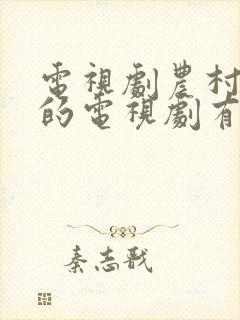 電視劇農村
的電視劇有
秦志戩